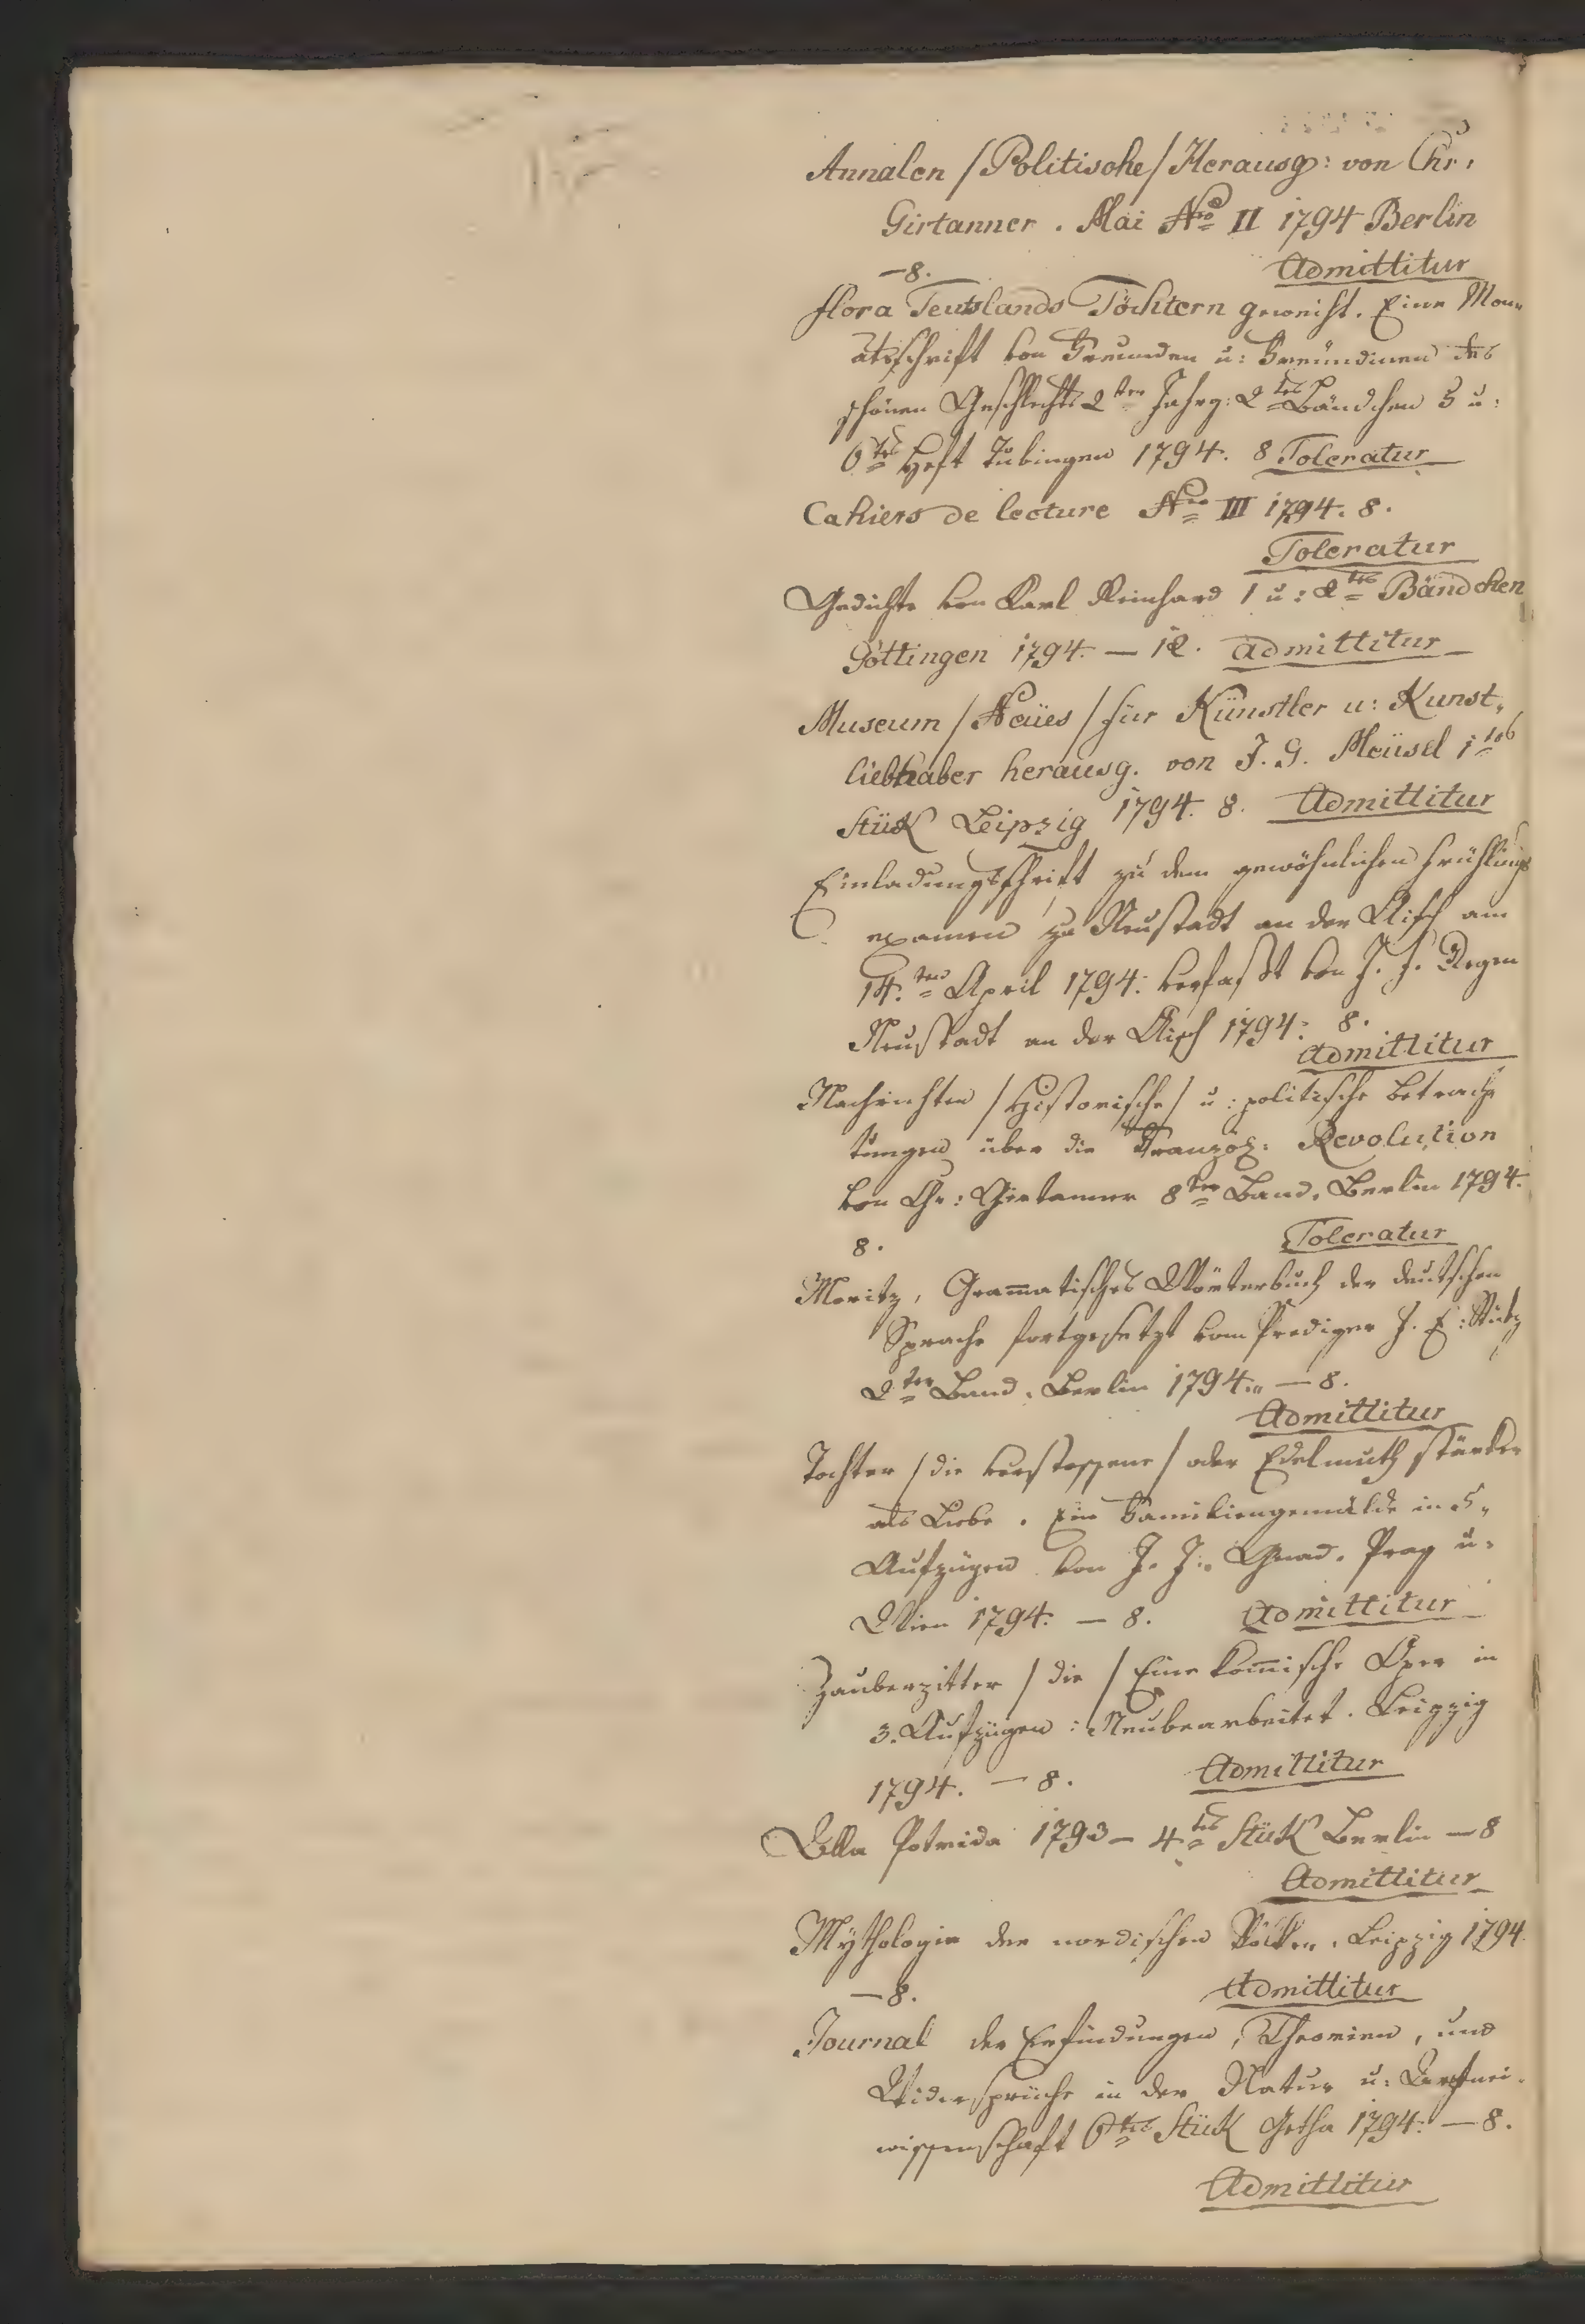 Annalen /Politische/ Herausg: von Chr:
Girtanner. Mai Nro II 1794 Berlin
—8. Admittitur
Flora Teutslands Töchtern geweiht. Eine Mon„
atsschrift von Freunden u: Freündinen des
schönen Geschlechts 2ter Jahrg: 2tes Bändchen 5 u:
6tes Heft Tubingen 1794. 8 Toleratur
Cahiers de lecture Nro III 1794. 8.
Toleratur
Gedichte von Karl Reinhard 1 u: 2tes Bändchen
Göttingen 1794. — 12. Admittitur
Museum /Neües/ für Künstler u: Kunst„
liebhaber herausg. von J. G. Meüsel 1tes
Stük Leipzig 1794. 8. Admittitur
Einladungsschrift zu dem gewöhnlichen Frühlings
examen zu Neustadt an der Aisch am
14.ten April 1794. verfaßt von J. J. Degen
Neustadt an der Aisch 1794: 8.
Admittitur
Nachrichten /Historische/ u: politische Betrach
tungen über die Französ: Revolution
von Chr: Girtanner 8ter Band. Berlin 1794.
8. Toleratur
Moritz, Gram̅atisches Wörterbuch der deutschen
Sprache fortgesetzt vom Prediger J. E: Stutz
2ter Band. Berlin 1794. — 8.
Admittitur
Tochter /die verstossene/ oder Edelmuth stärker
als Liebe. Ein Familiengemälde in 5„
Aufzügen von J. J. Gnad. Prag u:
Wien 1794. — 8. Admittitur
Zauberzitter /die/ Eine kom̅ische Oper in
3. Aufzügen: Neubearbeitet. Leipzig
1794. — 8. Admittitur
Olla Potrida 1793 — 4tes Stük Berlin — 8
Admittitur
Mÿthologie der nordischen Völker. Leipzig 1794.
—8. Admittitur
Journal der Erfindungen, Theorien, und
Widersprüche in der Natur u: Arznei-
wissenschaft 6tes Stük Gotha 1794. — 8.
Admittitur